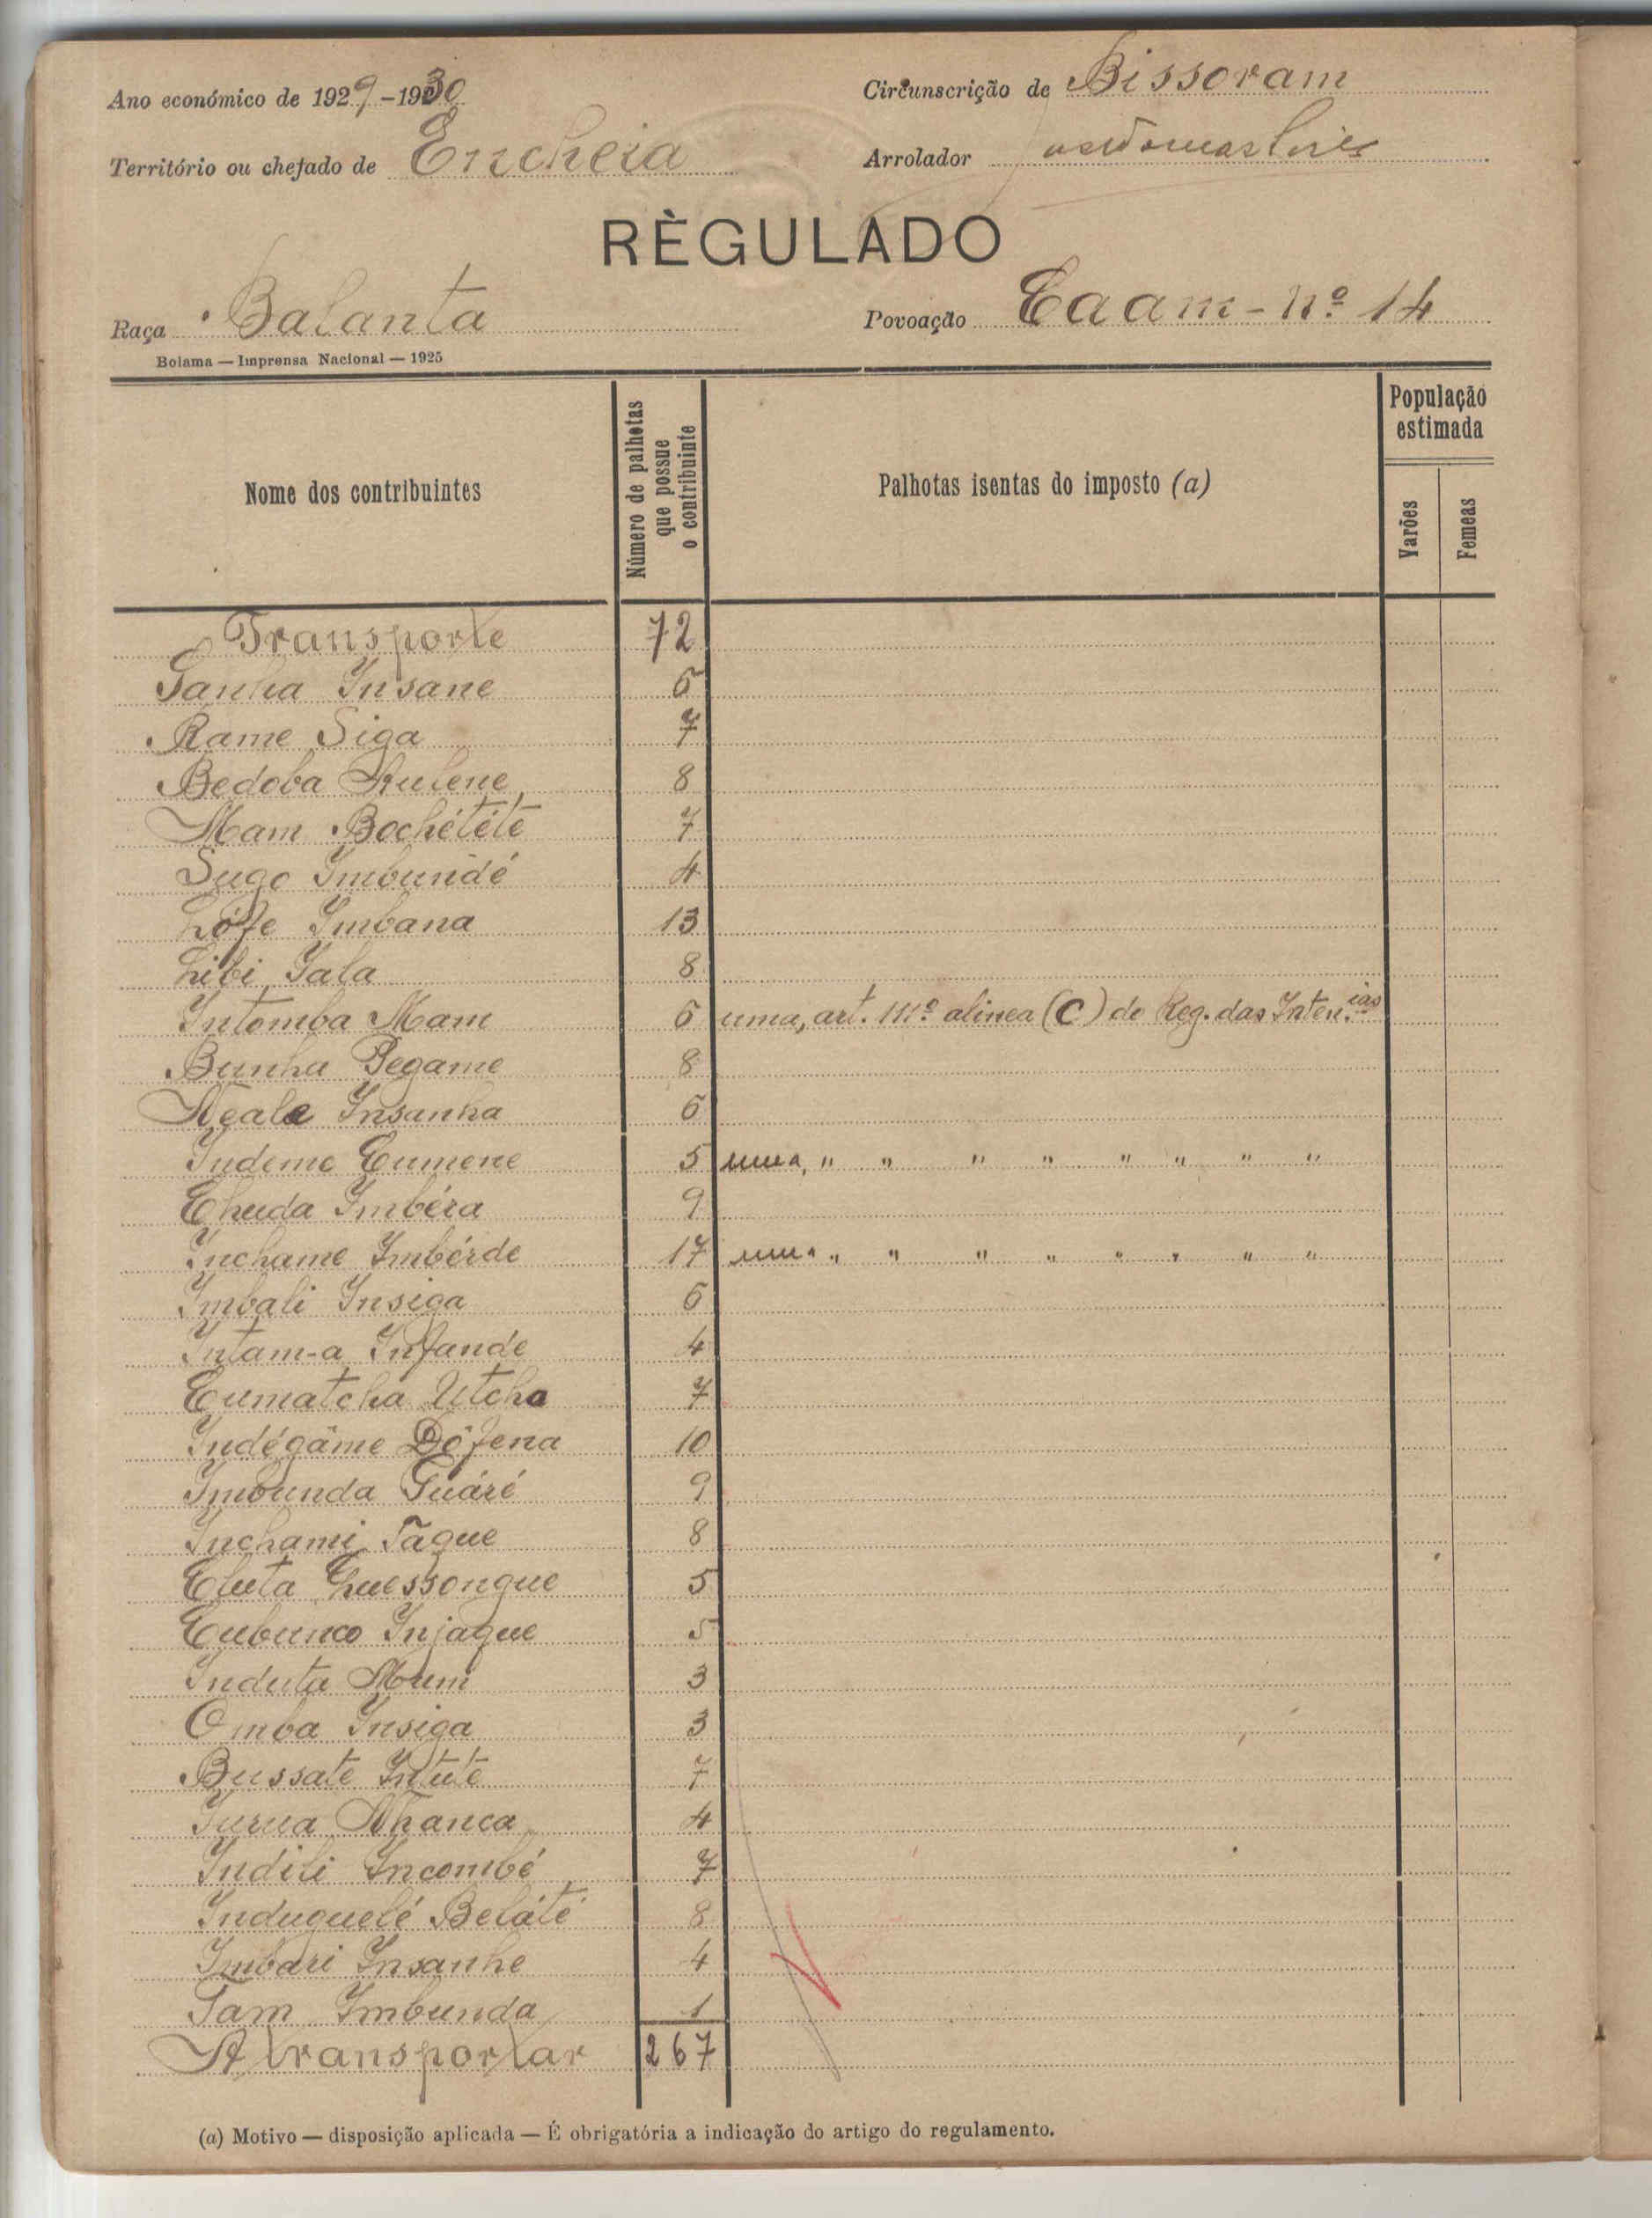 Ano económico de 1929-1930
Circunscrição de Bissoram
Território ou chefado de Encheia
Arrolador
RÈGULADO
Raça Balanta
Povoação Caam - Nº 14
Bolama — Imprensa Nacional — 1925
Nome dos contribuintes
Número de palhotas que possue o contribuinte
Palhotas isentas do imposto (a)
População estimada
Varões
Femeas
Transporte 72
Sanha Insane 6
Rame Siga 7
Bedoba Kulene 8
Mam Bochétété 7
Sugo Imbundé 4
Lófe Imbana 13
Libi Iala 8
Intomba Mam 6 uma, art. 111º alinea (C) do Reg. das Inten.ias
Bunha Pegame 8
Neale Insanha 6
Indeme Cumene 5 uma, " " " " " " " "
Chuda Imbéra 9
Inchame Imbérde 17 uma " " " " " " " "
Imbali Insiga 6
Intam-a Infande 4
Cumatcha Utcha 7
Indégâme Dófena 10
Imbunda Guáré 9
Inchami Tague 8
Cluta Quessongue 5
Cubunco Injague 5
Induta Mum 3
Omba Insiga 3
Bussate Intute 7
Iurua Nhanca 4
Indili Incombé 7
Induguelé Beláté 8
Imbari Insanhe 4
Tam Imbunda 1
A transportar 267
(a) Motivo — disposição aplicada — É obrigatória a indicação do artigo do regulamento.